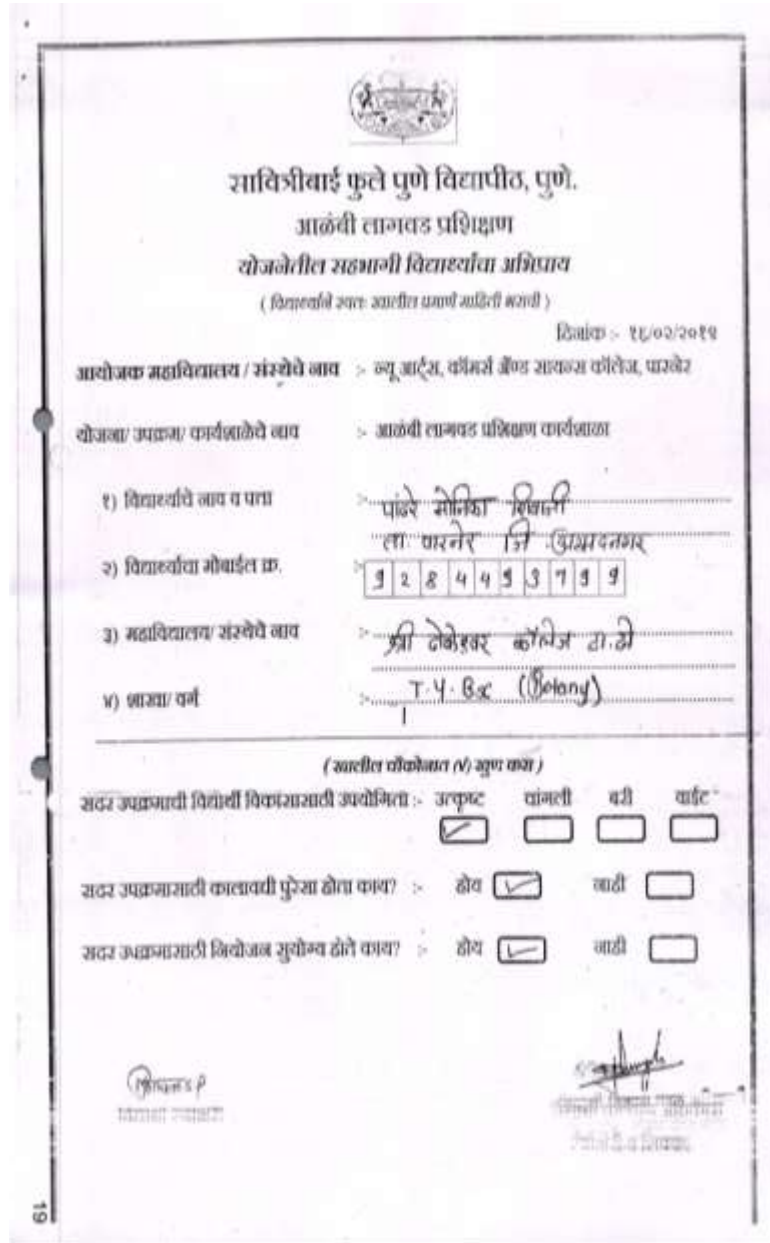 सावित्रीबाई फुले पुणे विद्यापीठ, पुणे.
आळंबी लागवड प्रशिक्षण
योजनेतील सहभागी विद्यार्थ्यांचा अभिप्राय
( विद्यार्थ्याने स्वतः खालील प्रमाणे माहिती भरावी )
दिनांक :- १६/०२/२०१९
आयोजक महाविद्यालय / संस्थेचे नाव :- न्यू आर्ट्स, कॉमर्स अँण्ड सायन्स कॉलेज, पारनेर
योजना/ उपक्रम/ कार्यशाळेचे नाव :- आळंबी लागवड प्रशिक्षण कार्यशाळा
१) विद्यार्थ्याचे नाव व पत्ता :- पांढरे मोनिका शिवाजी
ता. पारनेर जि. अहमदनगर
२) विद्यार्थ्याचा मोबाईल क्र. :-
३) महाविद्यालय/ संस्थेचे नाव :- श्री ढोकेश्वर कॉलेज टा.ढो
४) शाखा/ वर्ग :- T.Y.Bsc (Botany)
( खालील चौकोनात (√) खुण करा )
सदर उपक्रमाची विद्यार्थी विकासासाठी उपयोगिता :- उत्कृष्ट चांगली बरी वाईट
सदर उपक्रमासाठी कालावधी पुरेसा होता काय? :- होय नाही
सदर उपक्रमासाठी नियोजन सुयोग्य होते काय? :- होय नाही
19